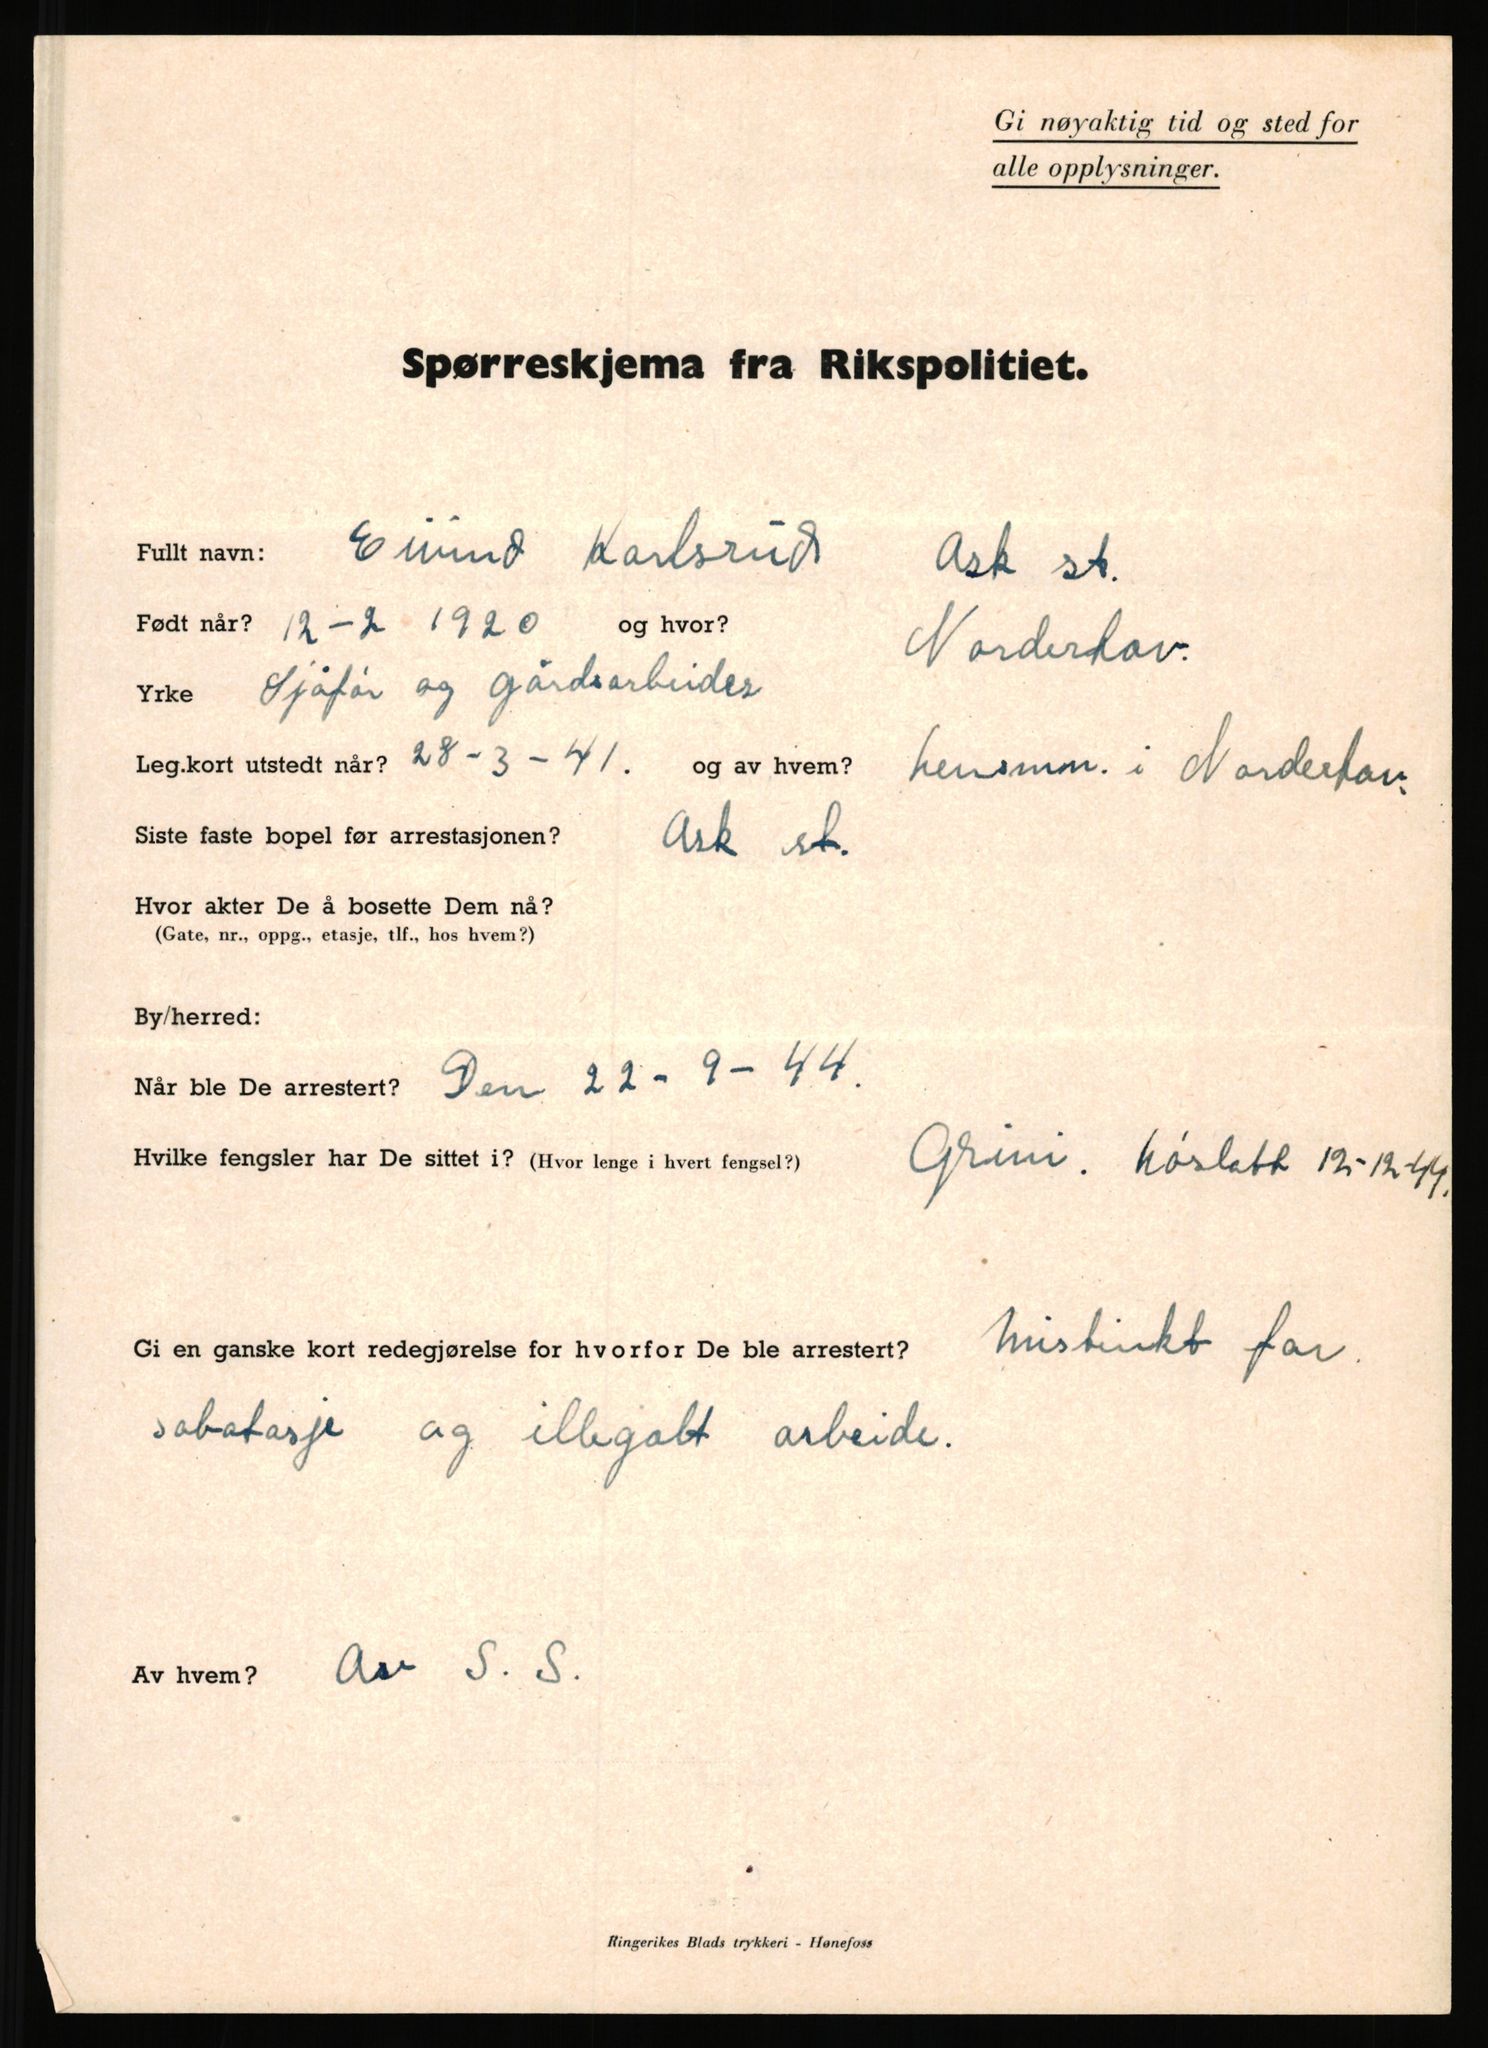 Gi nøyaktig tid og sted for
alle opplysninger.
Spørreskjema fra Rikspolitiet.
Fullt navn: Eivind Karlsrud Ask st.
Født når? 12-2 1920 og hvor? Norderhov.
Yrke Sjåfør og gårdsarbeider
Leg.kort utstedt når? 28-3-41. og av hvem? Lensmm. i Norderhov.
Siste faste bopel før arrestasjonen? Ask st.
Hvor akter De å bosette Dem nå?
(Gate, nr., oppg., etasje, tlf., hos hvem?)
By/herred:
Når ble De arrestert? Den 22-9-44.
Hvilke fengsler har De sittet i? (Hvor lenge i hvert fengsel?) Grini. Løslatt 12-12-44.
Gi en ganske kort redegjørelse for hvorfor De ble arrestert? Mistinkt for
sabotasje og illegalt arbeide.
Av hvem? Av S. S.
Ringerikes Blads trykkeri - Hønefoss